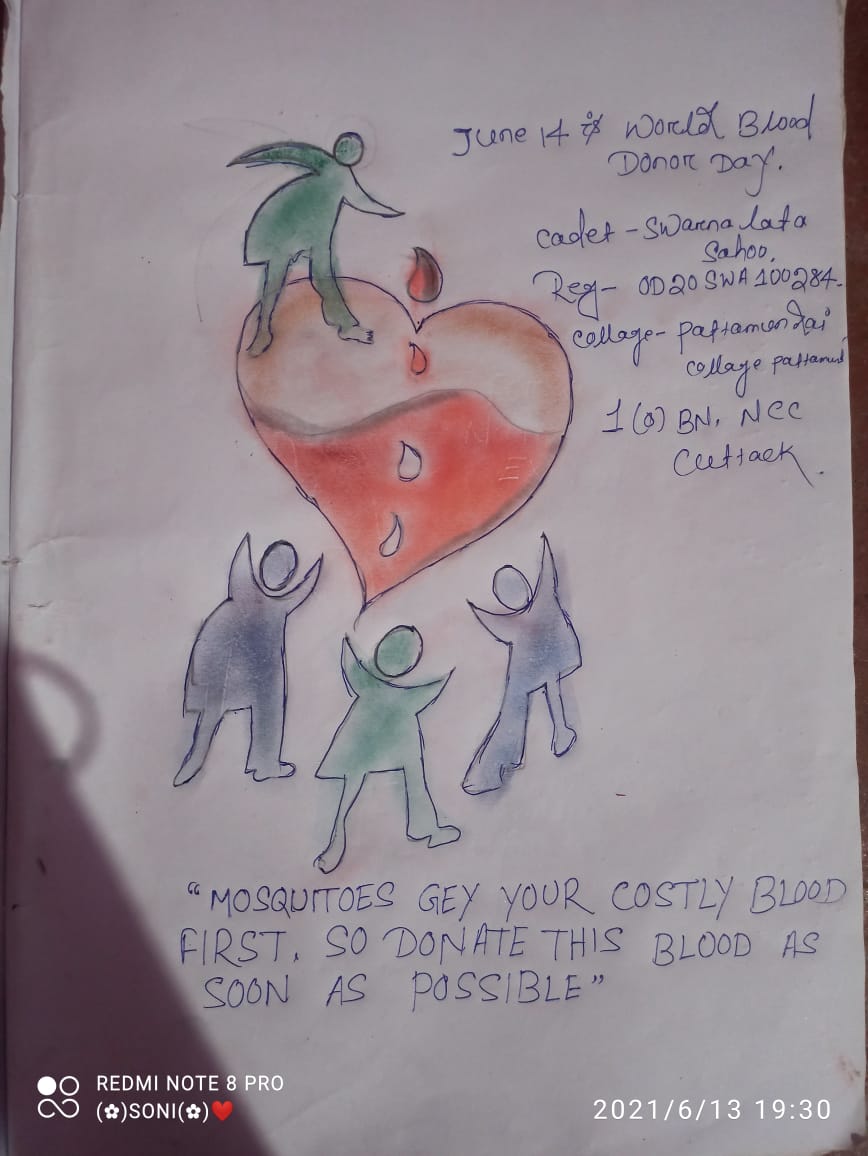 June 14 is World Blood
Donor Day.
cadet - Swarna lata
Sahoo.
Reg- OD20SWA100284.
collage- pattamundai
collage pattamud
1(o) BN, NCC
Cuttack.
"MOSQUITOES GEY YOUR COSTLY BLOOD
FIRST. SO DONATE THIS BLOOD AS
SOON AS POSSIBLE"
REDMI NOTE 8 PRO
(✿)SONI(✿)❤️
2021/6/13 19:30